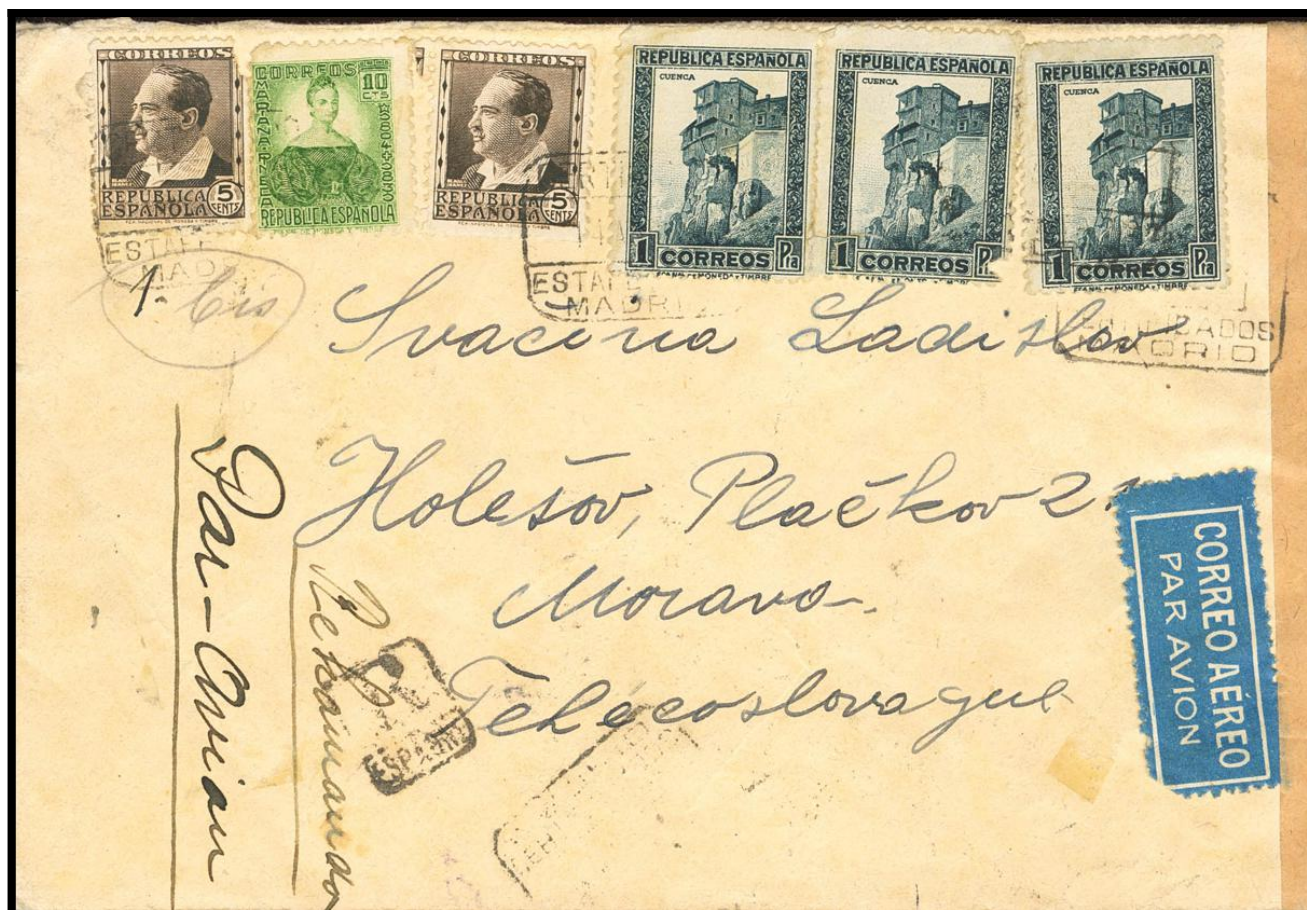 CORREOS
REPUBLICA
ESPAÑOLA 5
CENTS
CORREOS 10
CTS
MARIANA PINEDA
REPUBLICA ESPAÑOLA
CORREOS
REPUBLICA
ESPAÑOLA 5
CENTS
REPUBLICA ESPAÑOLA
CUENCA
1 CORREOS Pta
REPUBLICA ESPAÑOLA
CUENCA
1 CORREOS
REPUBLICA ESPAÑOLA
CUENCA
1 CORREOS Pta
MADRI
1. bis
Svacina Ladislav
Holešov, Plačkov 21
Morava-
Tehécoslovaque
Par-Avion
ESPAÑA
CORREO AÉREO
PAR AVION